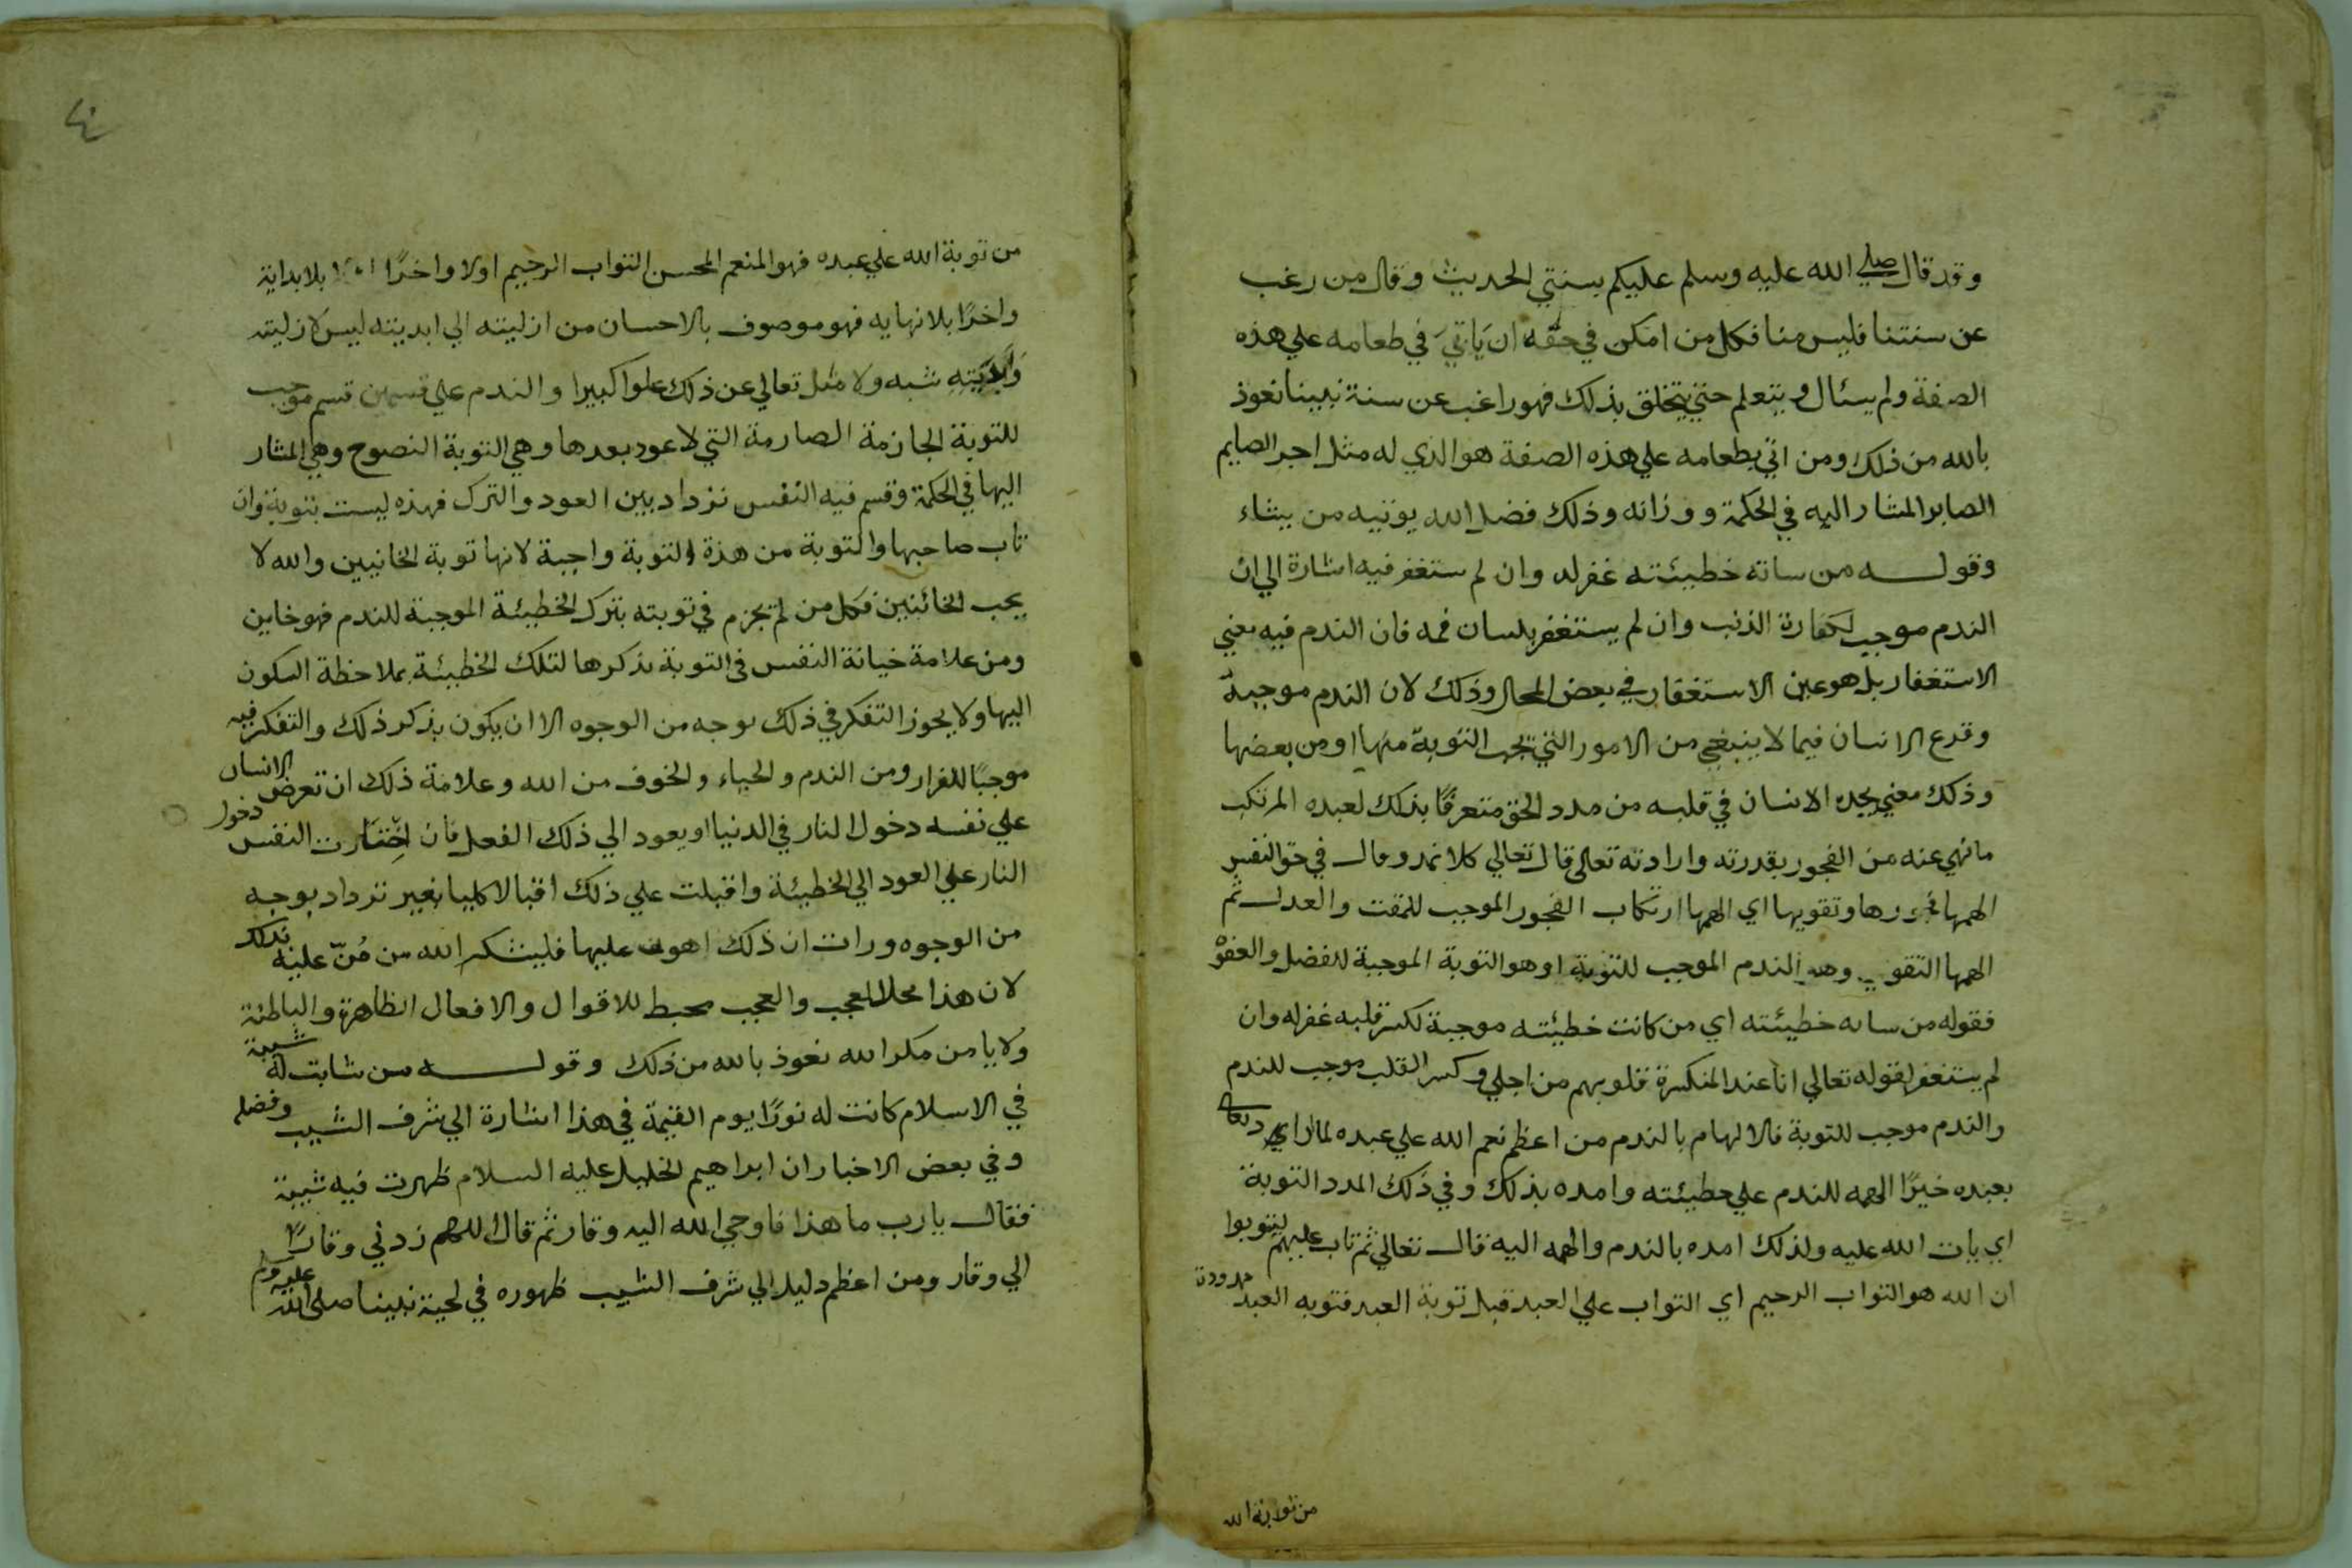 وقد قال صلي الله عليه وسلم عليكم بسنتي الحديث وقال من رغب
عن سنتنا فليس منا فكل من امكن في حقه ان ياتي في طعامه علي هذه
الصفة ولم يسئال و يتعلم حتي يتخلق بذلك فهو راغب عن سنة نبينا نعوذ
بالله من ذلك ومن اتي بطعامه علي هذه الصفة هو الذي له مثل اجر الصايم
الصابر المشار اليه في الحكمة ووزانه وذلك فضل الله يوتيه من يشاء
وقوله من ساته خطيئته غفر له وان لم ستغفر فيه اشارة الي ان
الندم موجب لكفارة الذنب وان لم يستغفر بلسان فمه فان الندم فيه معني
الاستغفار بل هو عين الاستغفار في بعض المحال وذلك لان الندم موجبه
وقرع الانسان فيما لا ينبغي من الامور التي تجب التوبة منها او من بعضها
وذلك معني يجده الانسان في قلبه من مدد الحق متعرفا بذلك لعبده المرتكب
ما نهي عنه من الفجور بقدرته وارادته تعالى قال تعالي كلا نمد وقال في حق النفس
الهمها فجورها وتقويها اي الهمها ارتكاب الفجور الموجب للمقت والعدل ثم
الهمها التقوي وهو الندم الموجب للتوبة او هو التوبة الموجبة للفضل والعفو
فقوله من ساته خطيئته اي من كانت خطيئته موجبة لكسر قلبه غفر له وان
لم يستغفر لقوله تعالي انا عند المنكسرة قلوبهم من اجلي وكسر القلب موجب للندم
والندم موجب للتوبة فالالهام بالندم من اعظم نعم الله علي عبده لما اراد تعالي
بعبده خيرًا الهمه للندم علي خطيئته وامده بذلك وفي ذلك المدد التوبة
اي بات الله عليه ولذلك امده بالندم والهمه اليه قال تعالي ثم تاب عليهم ليتوبوا
ان الله هو التواب الرحيم اي التواب علي العبد قبل توبة العبد فتوبه العبد مدودة
من توبة الله
٤
من توبة الله علي عبده فهو المنعم المحسن التواب الرحيم اولا واخرًا بلا بداية
واخرًا بلا نهايه فهو موصوف بالاحسان من ازليته الي ابديته ليس لازليته
وابديته شبه ولا مثل تعالي عن ذلك علوا كبيرا والندم علي قسمين قسم موجب
للتوبة الجازمة الصارمة التي لا عود بعدها وهي التوبة النصوح وهي المشار
اليها في الحكمة وقسم فيه النفس تزداد بين العود والترك فهذه ليست بتوبة وان
تاب صاحبها والتوبة من هذة التوبة واجبة لانها توبة الخانيين والله لا
يحب الخائنين فكل من لم يجزم في توبته بترك الخطيئة الموجبة للندم فهو خاين
ومن علامة خيانة النفس في التوبة بذكرها لتلك الخطيئة بملاحظة السكون
اليها ولا يجوز التفكر في ذلك بوجه من الوجوه الا ان يكون بذكر ذلك والتفكر فيه
موجبًا للفرار ومن الندم والحياء والخوف من الله وعلامة ذلك ان تعرض الانسان
علي نفسه دخول النار في الدنيا او يعود الي ذلك الفعل فان اختارت النفس دخول
النار علي العود الي الخطيئة واقبلت علي ذلك اقبالا كليا بغير تزداد بوجه
من الوجوه ورات ان ذلك اهون عليها فليشكر الله من منّ عليه بذلك
لان هذا محلا للعجب والعجب محبط للاقوال والافعال الظاهرة والباطنة
ولا يامن مكر الله نعوذ بالله من ذلك وقوله من شابت له شيبة
في الاسلام كانت له نورًا يوم القيمة في هذا اشارة الي شرف الشيب وفضله
وفي بعض الاخبار ان ابراهيم الخليل عليه السلام ظهرت فيه شيبة
فقال يا رب ما هذا فاوحي الله اليه وقار ثم قال اللهم زدني وقارًا
الي وقار ومن اعظم دليل الي شرف الشيب ظهوره في لحية نبينا صلي الله عليه وسلم